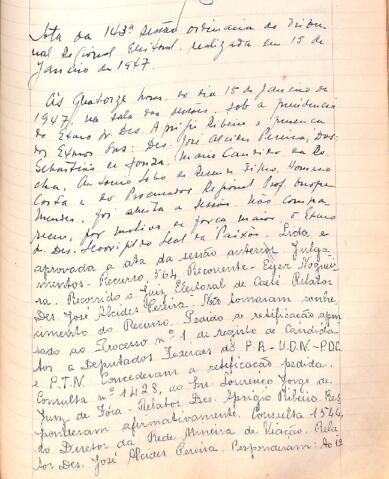 Ata da 143ª sessão ordinaria do Tribu-
nal Regional Eleitoral, realizada em 15 de
Janeiro de 1947.
Às Quatorze horas do dia 15 de Janeiro de
1947, na sala das sessões, sob a presidencia
do Exmo Sr. Des. Aprigio Ribeiro e presença
dos Exmos Snrs: Des. José Alcides Pereira, Drs.
Sebastião de Souza, Mario Candido da Ro-
cha, Antonio Lobo de Filho, Homero
Costa e do Procurador Regional Prof. Onofre
Mendes, foi aberta a sessão. Não compa-
receu, por motivo de força maior, o Exmo
Sr. Des. Leal da Paixão. Lida e
aprovada a ata da sessão anterior. Julga-
mentos - Recurso, 564. Recorrente - Eger Noguei-
ra. Recorrido o Juiz Eleitoral de Caeté. Relator
Des. José Alcides Pereira. Não tomaram conhe-
cimento do Recurso. Pedido de retificação apen-
sado ao Processo nº 1 de registo de Candida-
tos a Deputados Federaes do P.R - U.D.N - P.D.C
e P.T.N. Concederam a retificação pedida.
Consulta nº 1428, do Snr. Lourenço Jorge de
Juiz de Fóra - Relator Des. Aprigio Ribeiro. Res-
ponderam afirmativamente. Consulta 1544,
do Diretor da Rede Mineira de Viação. Rela-
tor Des. José Alcides Pereira. Responderam: Ao 1º